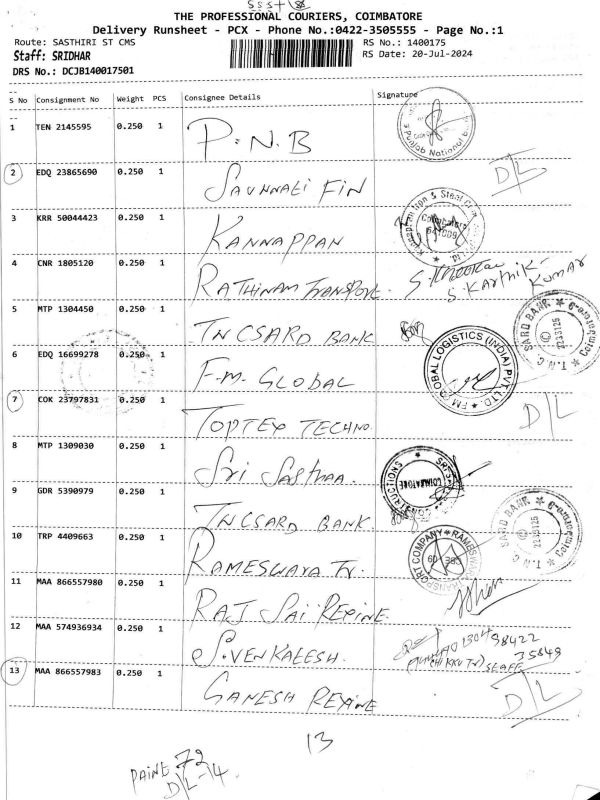 THE PROFESSIONAL COURIERS, COIMBATORE
Delivery Runsheet - PCX - Phone No.:0422-3505555 - Page No.:1
Route: SASTHIRI ST CMS
RS No.: 1400175
Staff: SRIDHAR
RS Date: 20-Jul-2024
DRS No.: DCJB140017501
S No Consignment No Weight PCS Consignee Details Signature
1 TEN 2145595 0.250 1 P.N.B
Punjab National
2 EDQ 23865690 0.250 1 FIN D/L
3 KRR 50044423 0.250 1 KANNAPPAN
4 CNR 1805120 0.250 1 RATHINAM TRANSPORT S. KARTHIK KUMAR
5 MTP 1304450 0.250 1 TNCSARD BANK
T.N.C SARD BANK Coimbatore
6 EDQ 16699278 0.250 1 F.M. GLOBAL
FM GLOBAL LOGISTICS (INDIA) PVT. LTD.
7 COK 23797831 0.250 1 TOPTEX TECHNO D/L
8 MTP 1309030 0.250 1 Sri Sasthaa
COIMBATORE
9 GDR 5390979 0.250 1 TNCSARD BANK
T.N.C SARD BANK Coimbatore
10 TRP 4409663 0.250 1 RAMESWARA Tr.
11 MAA 866557980 0.250 1 RAJ SAI REXINE
12 MAA 574936934 0.250 1 S.VENKATESH. 98422
35849
13 MAA 866557983 0.250 1 GANESH REXINE D/L
13
72
D/L-4